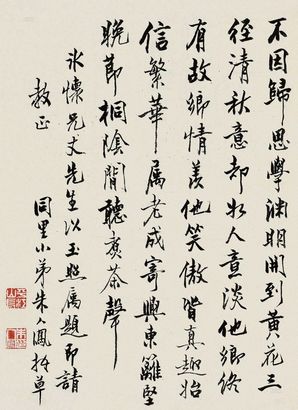 不因歸思學淵明開到黃花三
徑清秋意却如人意淡他鄉終
有故鄉情羨他笑傲皆真趣始
信繁華属老成寄興東籬堅
晚節桐陰閒聽煮茶聲
冰懷兄丈先生以玉照属題即請
教正
同里小弟朱人鳳拜草